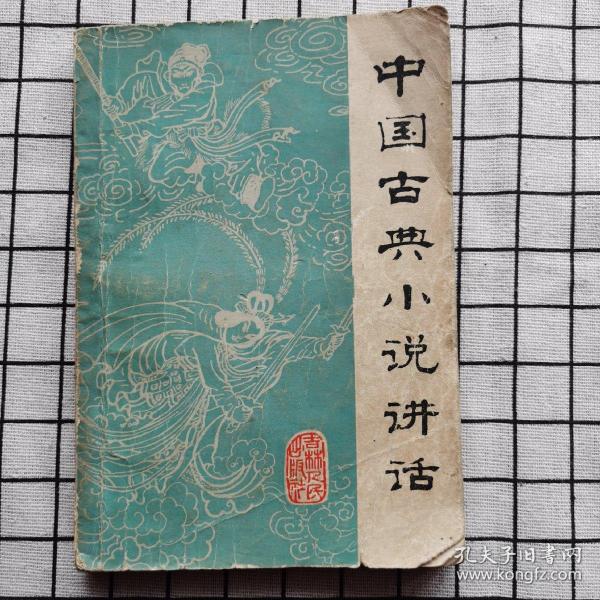 中国古典小说讲话
吉林人民
出版社
孔夫子旧书网
www.kongfz.com